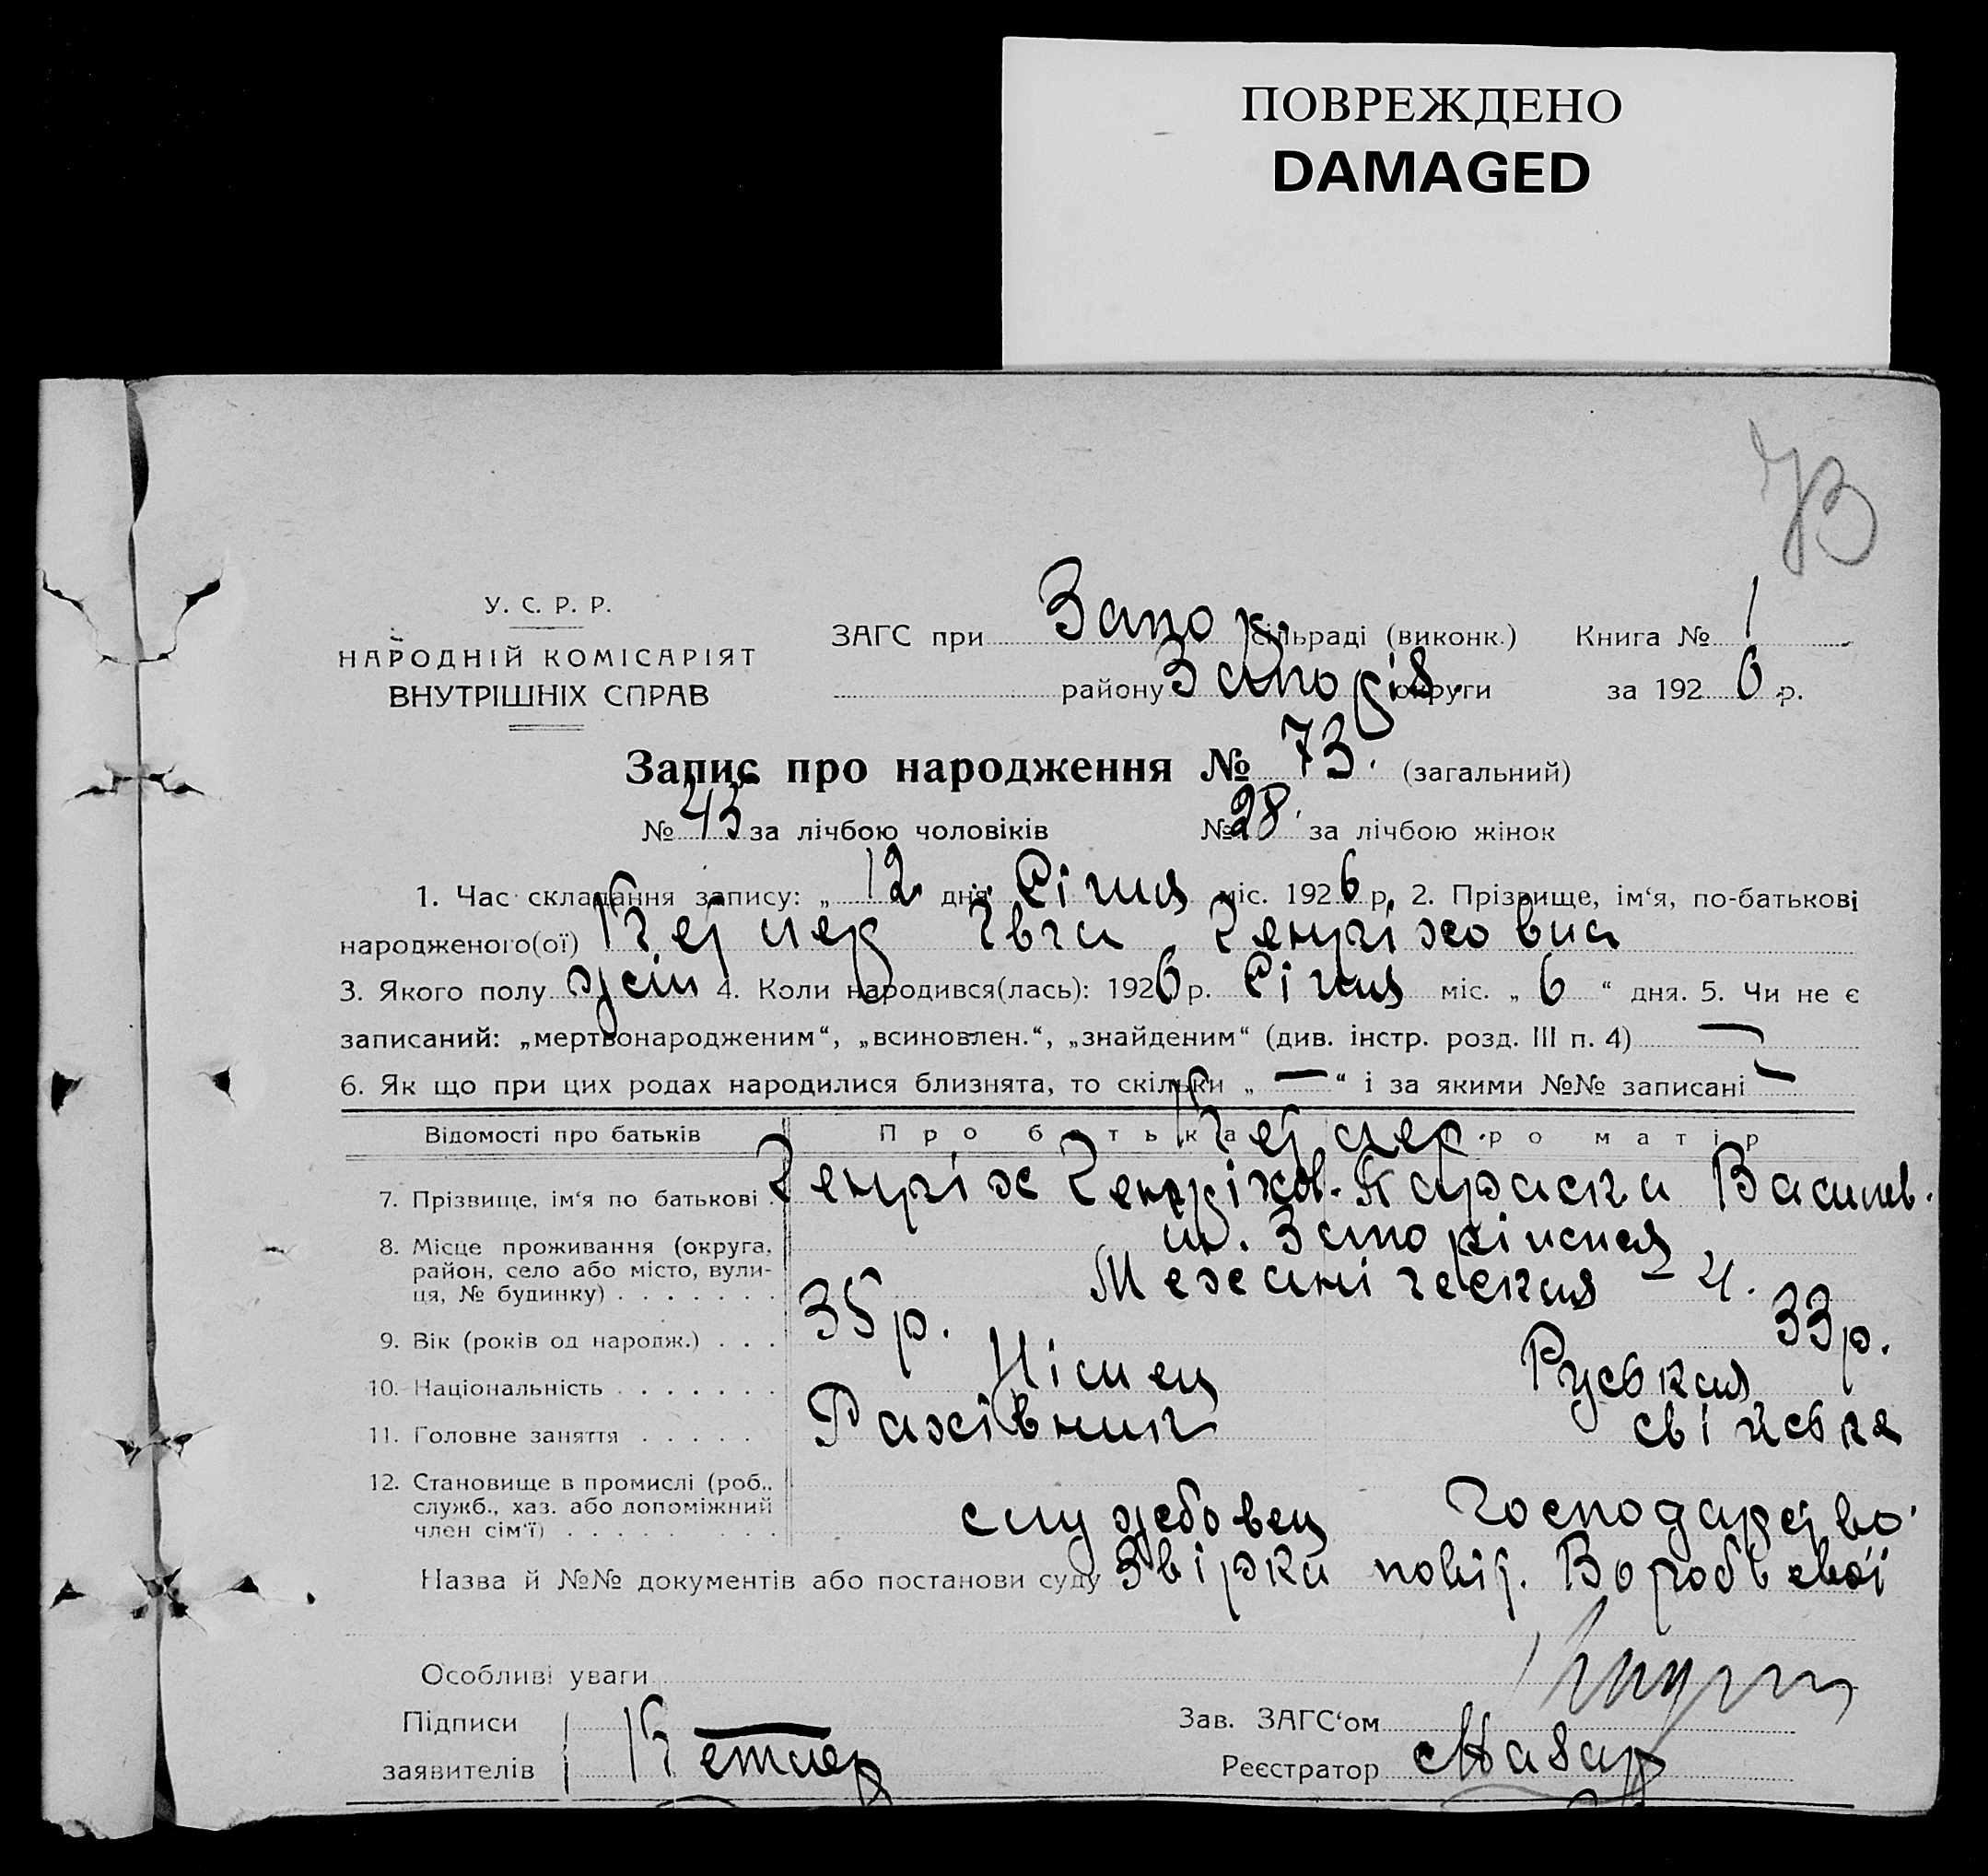 ПОВРЕЖДЕНО
DAMAGED
73
У. С. Р. Р.
НАРОДНІЙ КОМІСАРІЯТ
ВНУТРІШНІХ СПРАВ
ЗАГС при Запор сільраді (виконк.) Книга № 1
району Запоріз. округи за 192 6 р.
Запис про народження № 73. (загальний)
№ 45 за лічбою чоловіків № 28 за лічбою жінок
1. Час складання запису: „ 12 дня Січня міс. 192 6 р. 2. Прізвище, ім‘я, по-батькові
народженого(ої) Кетлер Євга Генріховна
3. Якого полу жін 4. Коли народився(лась): 192 6 р. Січня міс. „ 6 “ дня. 5. Чи не є
записаний: „мертвонародженим“, „всиновлен.“, „знайденим“ (див. інстр. розд. III п. 4) —
6. Як що при цих родах народилися близнята, то скільки „ — “ і за якими №№ записані —
Відомості про батьків Про батька Про матір
Кетлер
7. Прізвище, ім‘я по батькові Генріх Генріхов. Параска Василів.
8. Місце проживання (округа, район, село або місто, вулиця, № будинку) . . . . . . .
м. Запоріжжя,
Механіческая – 4.
9. Вік (років од народж.) . . . 35 р. 33 р.
10. Національність . . . . . . . Німец Руськая
11. Головне заняття . . . . . Рахівник свійське
12. Становище в промислі (роб., служб., хаз. або допоміжний член сім‘ї) . . . . . . . .
службовец господарство
Назва й №№ документів або постанови суду Звірки повит. Воробьевої
Особливі уваги
Підписи
заявителів Кетлер
Зав. ЗАГС‘ом
Реєстратор Назар